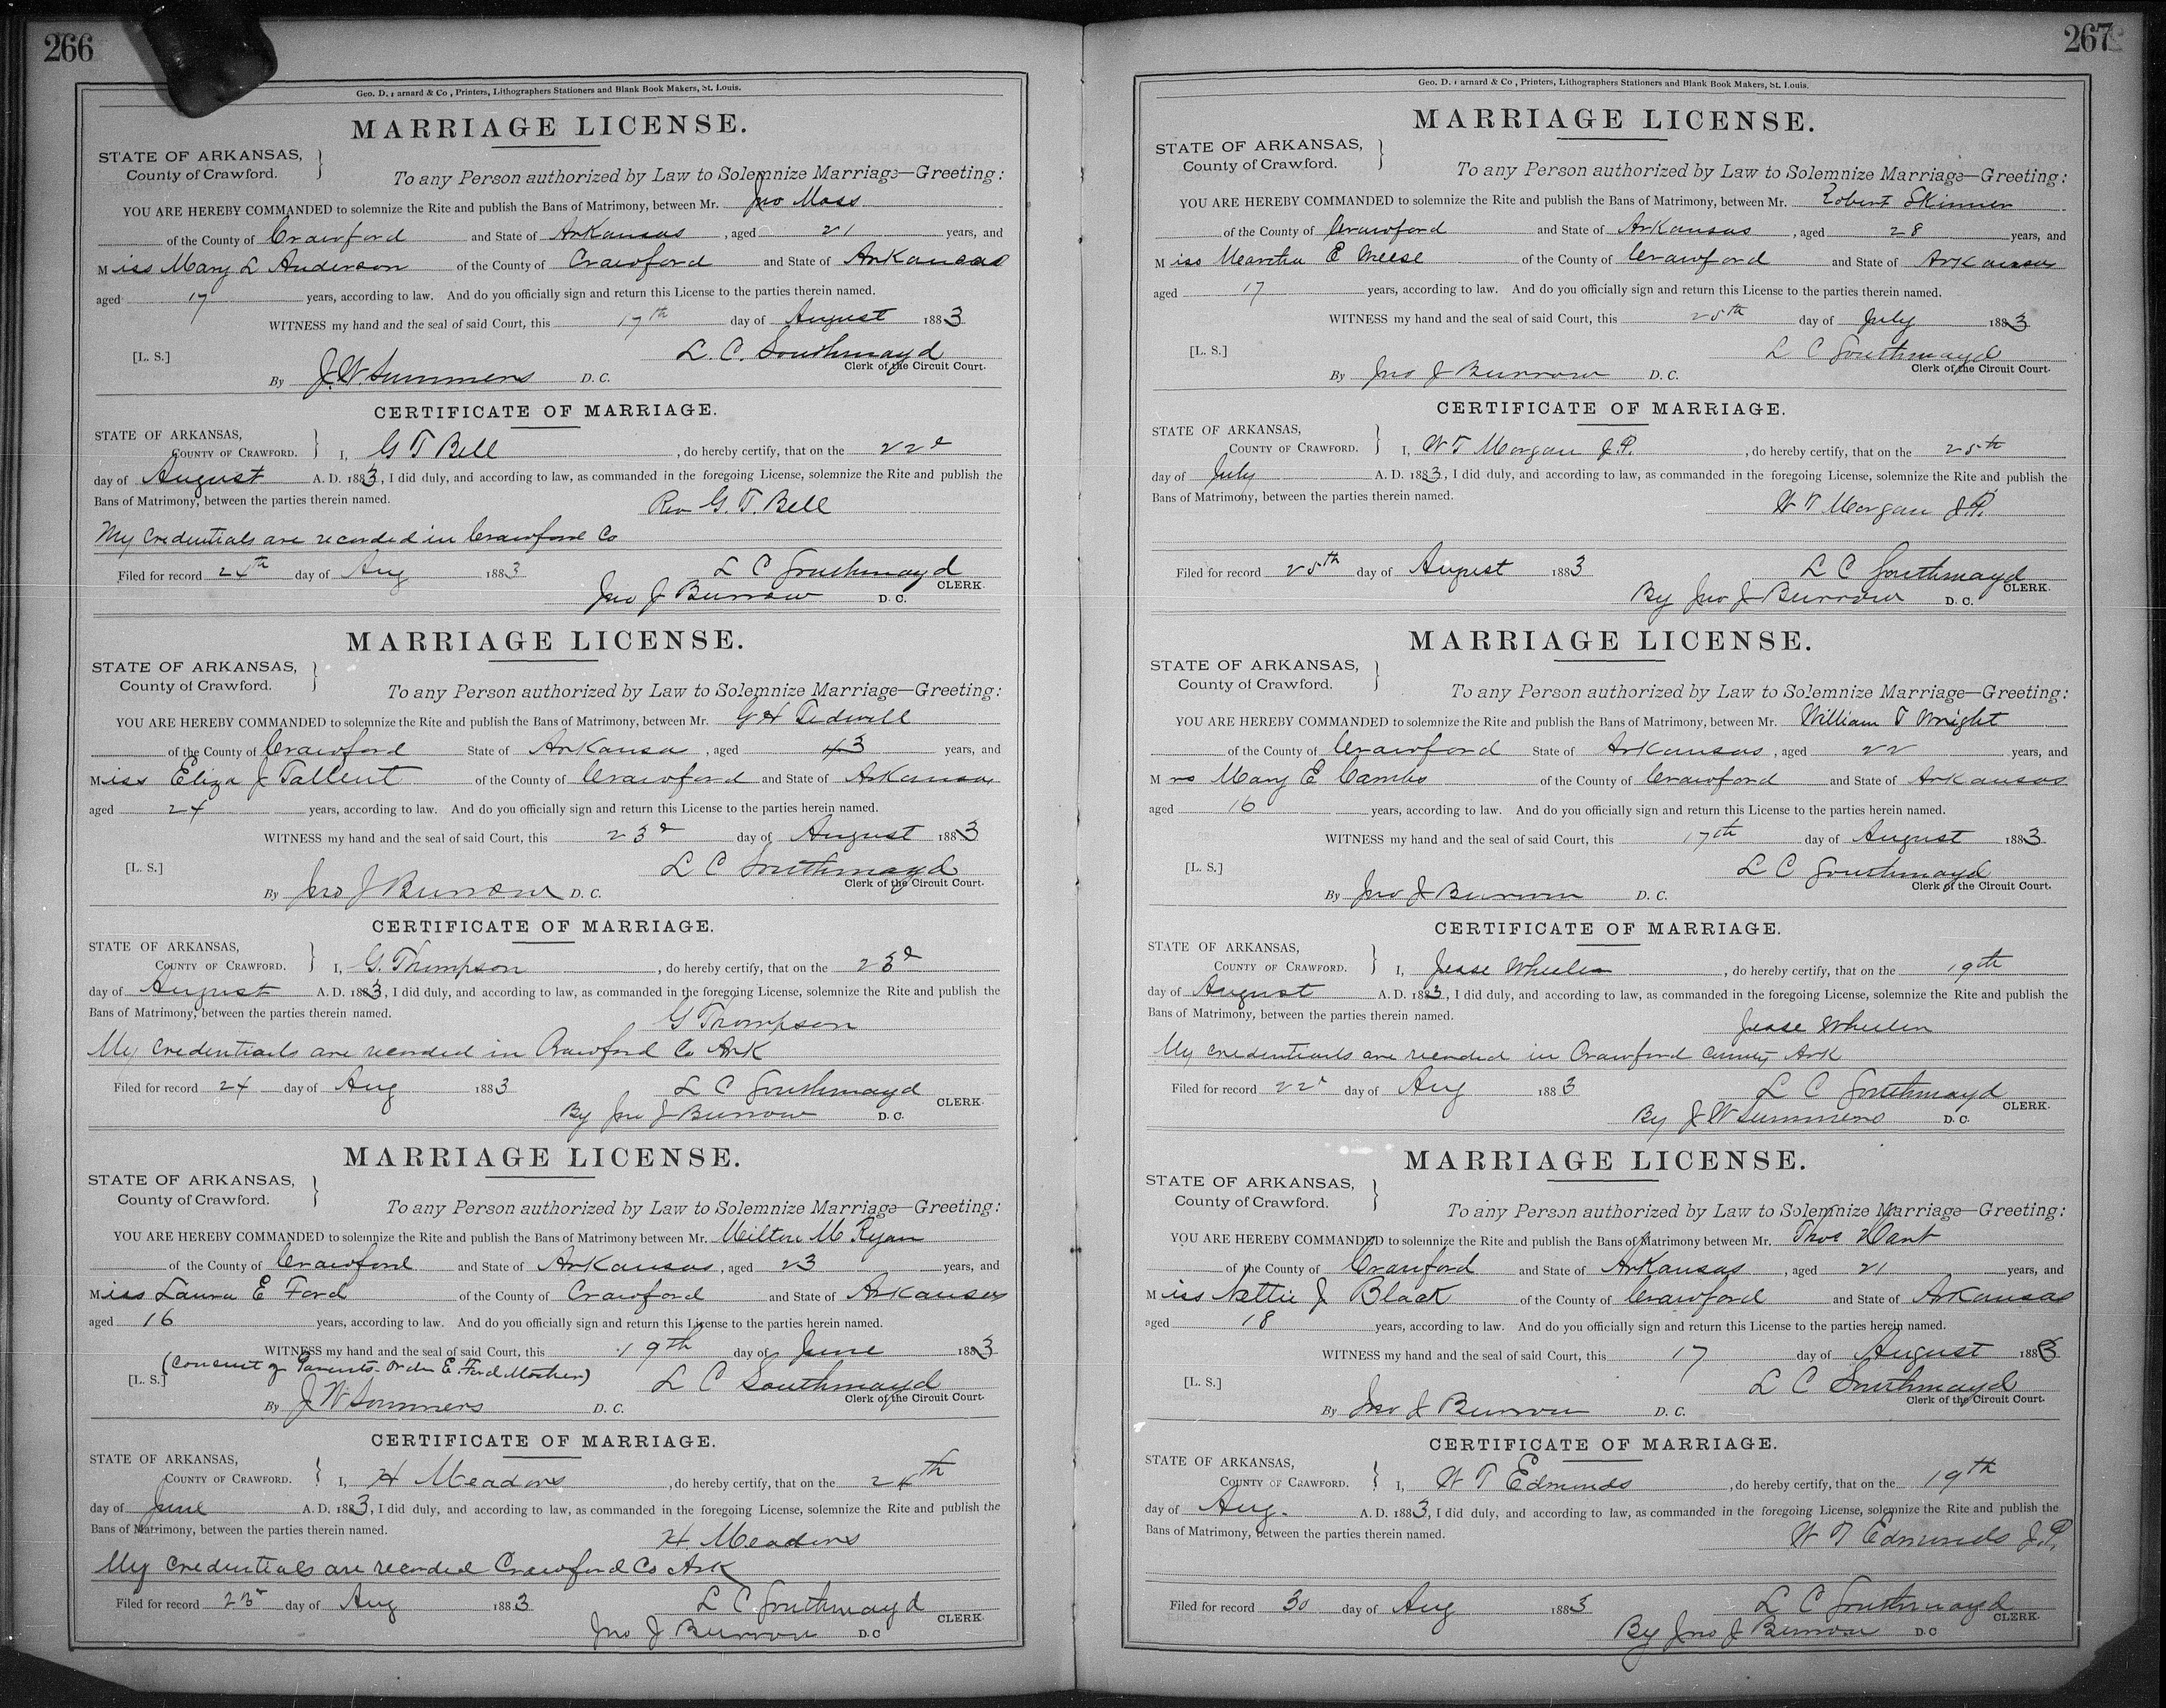 266
Geo. D. Barnard & Co., Printers, Lithographers Stationers and Blank Book Makers, St. Louis.
MARRIAGE LICENSE.
STATE OF ARKANSAS,
County of Crawford.
To any Person authorized by Law to Solemnize Marriage—Greeting:
YOU ARE HEREBY COMMANDED to solemnize the Rite and publish the Bans of Matrimony, between Mr. Jno Moss
of the County of Crawford and State of Arkansas, aged 21 years, and
Miss Mary L Anderson of the County of Crawford and State of Arkansas
aged 17 years, according to law. And do you officially sign and return this License to the parties therein named.
WITNESS my hand and the seal of said Court, this 17th day of August 1883
[L. S.] L. C. Southmayd
Clerk of the Circuit Court.
By J. W. Summers D. C.
CERTIFICATE OF MARRIAGE.
STATE OF ARKANSAS,
COUNTY OF CRAWFORD. I, G T Bell, do hereby certify, that on the 22d
day of August A. D. 1883, I did duly, and according to law, as commanded in the foregoing License, solemnize the Rite and publish the
Bans of Matrimony, between the parties therein named.
Rev G. T. Bell
My Credentials are recorded in Crawford Co
Filed for record 24th day of Aug 1883 L C Southmayd
CLERK.
Jno J Burrow D. C.
MARRIAGE LICENSE.
STATE OF ARKANSAS,
County of Crawford.
To any Person authorized by Law to Solemnize Marriage—Greeting:
YOU ARE HEREBY COMMANDED to solemnize the Rite and publish the Bans of Matrimony, between Mr. G H Tidwell
of the County of Crawford State of Arkansas, aged 43 years, and
Miss Eliza J Tallent of the County of Crawford and State of Arkansas
aged 24 years, according to law. And do you officially sign and return this License to the parties herein named.
WITNESS my hand and the seal of said Court, this 23d day of August 1883
[L. S.] L C Southmayd
Clerk of the Circuit Court.
By Jno J Burrow D. C.
CERTIFICATE OF MARRIAGE.
STATE OF ARKANSAS,
COUNTY OF CRAWFORD. I, G. Thompson, do hereby certify, that on the 23d
day of August A. D. 1883, I did duly, and according to law, as commanded in the foregoing License, solemnize the Rite and publish the
Bans of Matrimony, between the parties therein named.
G Thompson
My Credentials are recorded in Crawford Co Ark
Filed for record 24 day of Aug 1883 L C Southmayd
CLERK.
By Jno J Burrow D. C.
MARRIAGE LICENSE.
STATE OF ARKANSAS,
County of Crawford.
To any Person authorized by Law to Solemnize Marriage—Greeting:
YOU ARE HEREBY COMMANDED to solemnize the Rite and publish the Bans of Matrimony between Mr. Milton M Ryan
of the County of Crawford and State of Arkansas, aged 23 years, and
Miss Laura E Ford of the County of Crawford and State of Arkansas
aged 16 years, according to law. And do you officially sign and return this License to the parties herein named.
WITNESS my hand and the seal of said Court, this 19th day of June 1883
(Consent of Parents. E. Ford Mother)
[L. S.] L C Southmayd
Clerk of the Circuit Court.
By J W Summers D. C.
CERTIFICATE OF MARRIAGE.
STATE OF ARKANSAS,
COUNTY OF CRAWFORD. I, H Meadors, do hereby certify, that on the 24th
day of June A. D. 1883, I did duly, and according to law, as commanded in the foregoing License, solemnize the Rite and publish the
Bans of Matrimony, between the parties therein named.
H. Meadors
My Credentials are recorded Crawford Co Ark
Filed for record 23d day of Aug 1883 L C Southmayd
CLERK.
Jno J Burrow D. C
267
Geo. D. Barnard & Co., Printers, Lithographers Stationers and Blank Book Makers, St. Louis.
MARRIAGE LICENSE.
STATE OF ARKANSAS,
County of Crawford.
To any Person authorized by Law to Solemnize Marriage—Greeting:
YOU ARE HEREBY COMMANDED to solemnize the Rite and publish the Bans of Matrimony, between Mr. Robert Skinner
of the County of Crawford and State of Arkansas, aged 28 years, and
Miss Martha E Meese of the County of Crawford and State of Arkansas
aged 17 years, according to law. And do you officially sign and return this License to the parties therein named.
WITNESS my hand and the seal of said Court, this 25th day of July 1883
[L. S.] L C Southmayd
Clerk of the Circuit Court.
By Jno J Burrow D. C.
CERTIFICATE OF MARRIAGE.
STATE OF ARKANSAS,
COUNTY OF CRAWFORD. I, W T Morgan J. P., do hereby certify, that on the 25th
day of July A. D. 1883, I did duly, and according to law, as commanded in the foregoing License, solemnize the Rite and publish the
Bans of Matrimony, between the parties therein named.
W T Morgan J. P.
Filed for record 25th day of August 1883 L C Southmayd
CLERK.
By Jno J Burrow D. C.
MARRIAGE LICENSE.
STATE OF ARKANSAS,
County of Crawford.
To any Person authorized by Law to Solemnize Marriage—Greeting:
YOU ARE HEREBY COMMANDED to solemnize the Rite and publish the Bans of Matrimony, between Mr. William T Wright
of the County of Crawford State of Arkansas, aged 22 years, and
Mrs Mary E Combs of the County of Crawford and State of Arkansas
aged 16 years, according to law. And do you officially sign and return this License to the parties herein named.
WITNESS my hand and the seal of said Court, this 17th day of August 1883
[L. S.] L C Southmayd
Clerk of the Circuit Court.
By Jno J Burrow D. C.
CERTIFICATE OF MARRIAGE.
STATE OF ARKANSAS,
COUNTY OF CRAWFORD. I, Jesse Wheeler, do hereby certify, that on the 19th
day of August A. D. 1883, I did duly, and according to law, as commanded in the foregoing License, solemnize the Rite and publish the
Bans of Matrimony, between the parties therein named.
Jesse Wheeler
My credentials are recorded in Crawford County Ark
Filed for record 22d day of Aug 1883 L C Southmayd
CLERK.
By J W Summers D. C.
MARRIAGE LICENSE.
STATE OF ARKANSAS,
County of Crawford.
To any Person authorized by Law to Solemnize Marriage—Greeting:
YOU ARE HEREBY COMMANDED to solemnize the Rite and publish the Bans of Matrimony between Mr. Thos Want
of the County of Crawford and State of Arkansas, aged 21 years, and
Miss Nettie J Black of the County of Crawford and State of Arkansas
aged 18 years, according to law. And do you officially sign and return this License to the parties herein named.
WITNESS my hand and the seal of said Court, this 17 day of August 1883
[L. S.] L C Southmayd
Clerk of the Circuit Court.
By Jno J Burrow D. C.
CERTIFICATE OF MARRIAGE.
STATE OF ARKANSAS,
COUNTY OF CRAWFORD. I, W T Edmunds, do hereby certify, that on the 19th
day of Aug. A. D. 1883, I did duly, and according to law, as commanded in the foregoing License, solemnize the Rite and publish the
Bans of Matrimony, between the parties therein named.
W T Edmunds J. P.
Filed for record 30 day of Aug 1883 L C Southmayd
CLERK.
By Jno J Burrow D. C